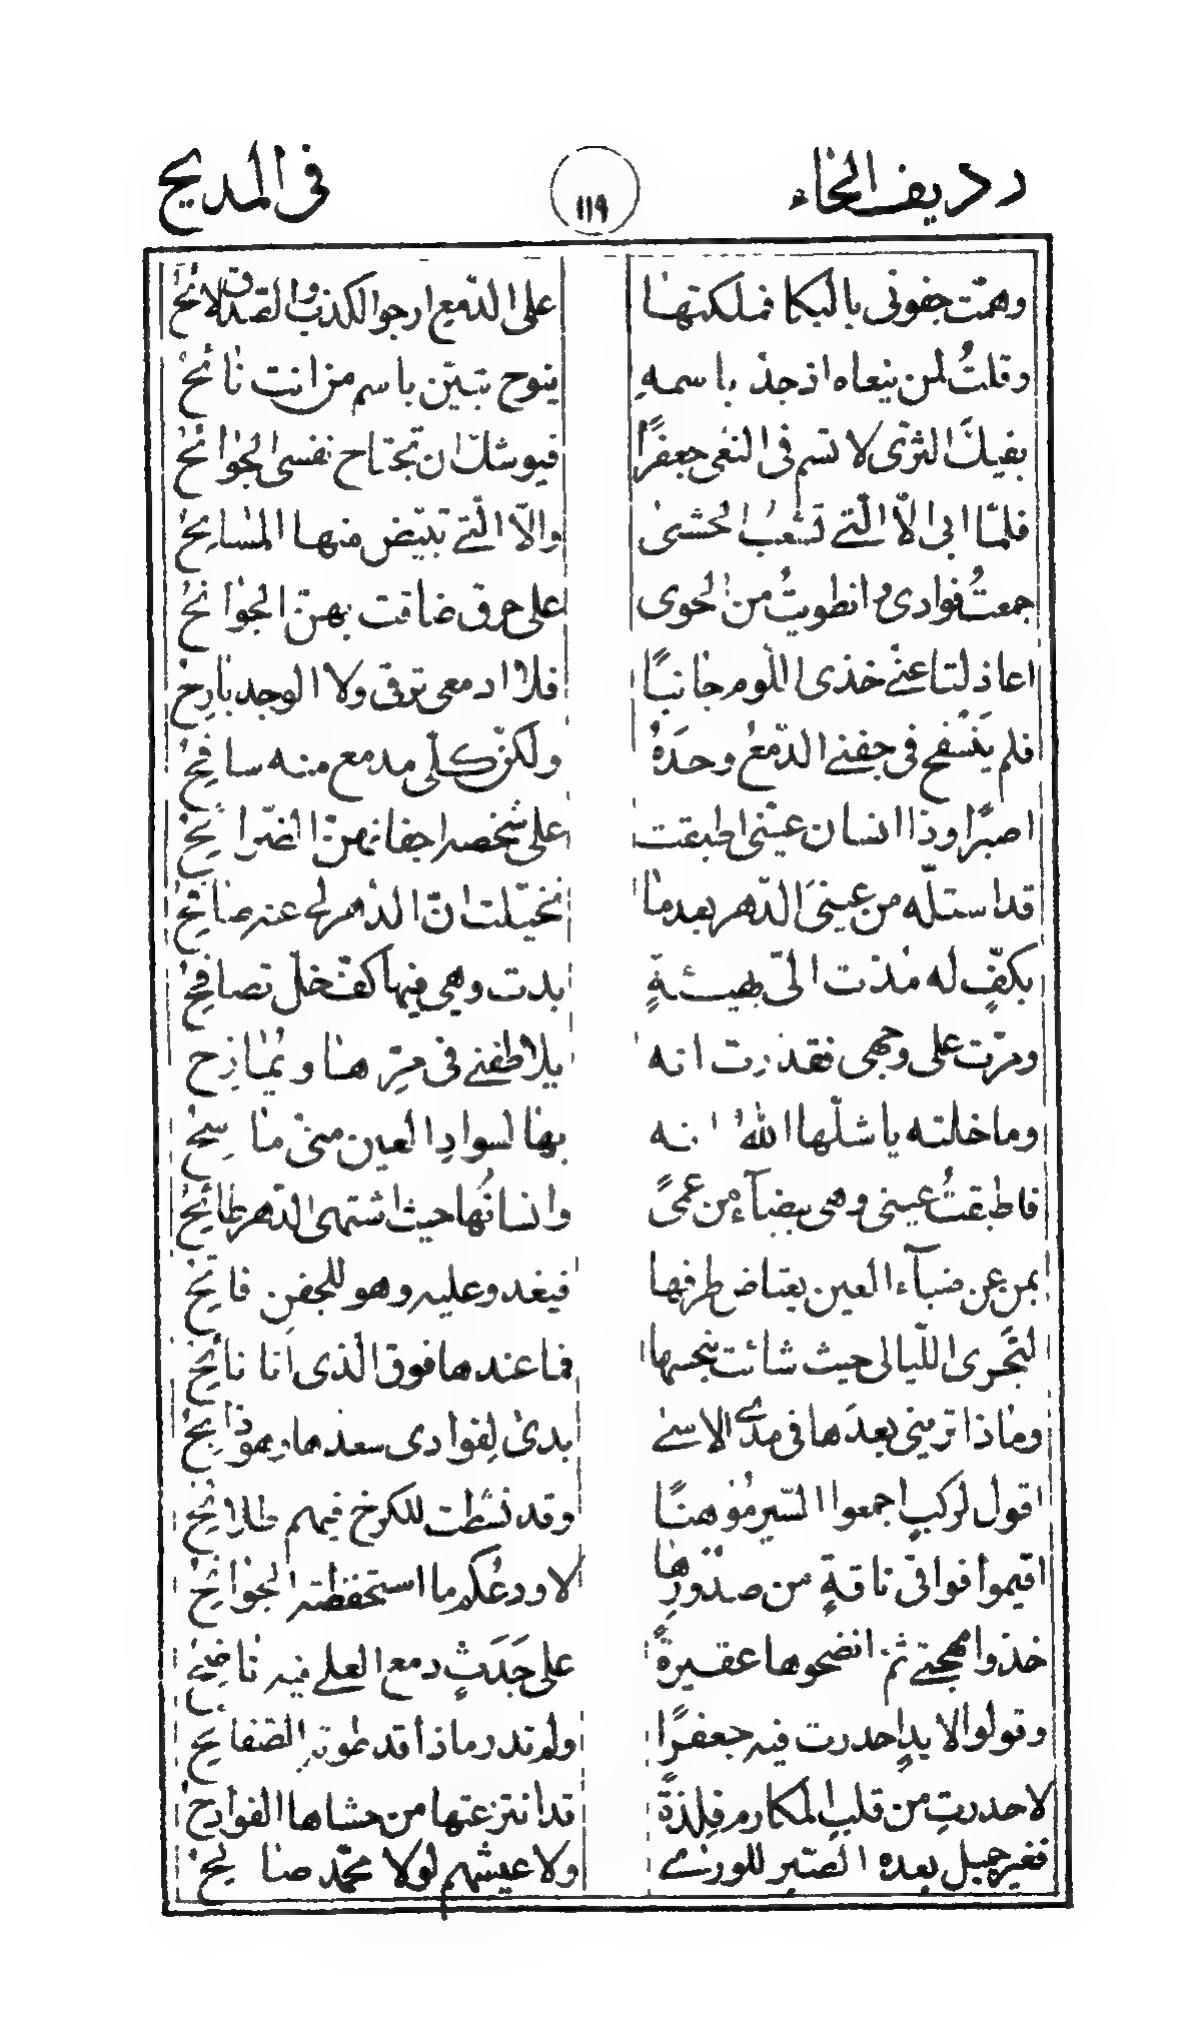 رديف الحاء ١١٩ في المديح
وهمّت جفوني بالبكا فملكتها على الدّمع ارجوا الكذب والصّدق لائح
وقلتُ لمن ينعاه اذ جدّ باسمهِ ينوح تبيّن باسم من انت نائح
بفيك الثرّى لا تسم في النعي جعفرًا فيوشك ان تجتاح نفسي الجوائح
فلمّا ابى الّا الّتي تشعبُ الحشى والّا الّتي تبيّض منها المسايح
جمعتُ فوادي وانطويتُ من الجوى على حرق ضاقت بهنّ الجوانح
اعاذلتا عنّي خذي اللوم جانبًا فلا ادمعي ترقى ولا الوجد بارح
فلم يَنسفح في جفني الدّمعُ وحدَهُ ولكنّ كلّي مدمع منه سافح
اصبرًا وذا انسان عيني اطبقت على شخصه اجفانهنّ الضّرائح
قد استلّه من عينيَ الدّهر بعدما تخيّلت انّ الدّهر لي عنه صافح
بكفٍّ له مُدّت الىّ بهيئةٍ بدت وهي فيها كفّ خلّ تصافح
ومرّت على وجهي فقدّرت انه يلاطفني في مرّها ويُمازح
وما خلته يا شلّها اللهُ انه بها لسوادِ العين منّي ماسح
فاطبقتُ عيني وهي بيضآء من عمىً وانسانُها حيث اشتهى الدّهر طائح
بمن عن ضيآء العين يعتاض طرفها فيغدو عليه وهو للجفنِ فاتح
لتَجرى اللّيالي حيث شائت بنحسها فما عندها فوق الذي أنا نائح
وماذا تريني بعدَها في مدى الاسى بدى لِفوادي سعدها وهو ذابح
اقول لركبٍ اجمعوا السّير مُوهنًا وقد نشطت للكرخ فيهم طلائح
اقيموا فواقي ناقةٍ من صدورِها لاودعُكم ما استحفظته الجوانح
خذوا مهجتي ثم انضحوها عقيرةً على جَدَثٍ دمع العلى فيه ناضح
وقولوا لايدٍ احدرت فيه جعفرًا ولم تدر ماذا قد طوته الصّفائح
لاحدرتِ من قلبِ المكارم فِلذةً قد انتزعتها من حشاها الفوادح
فغير جميل بعده الصّبر للورى ولا عيشهم لولا محمّد صالح